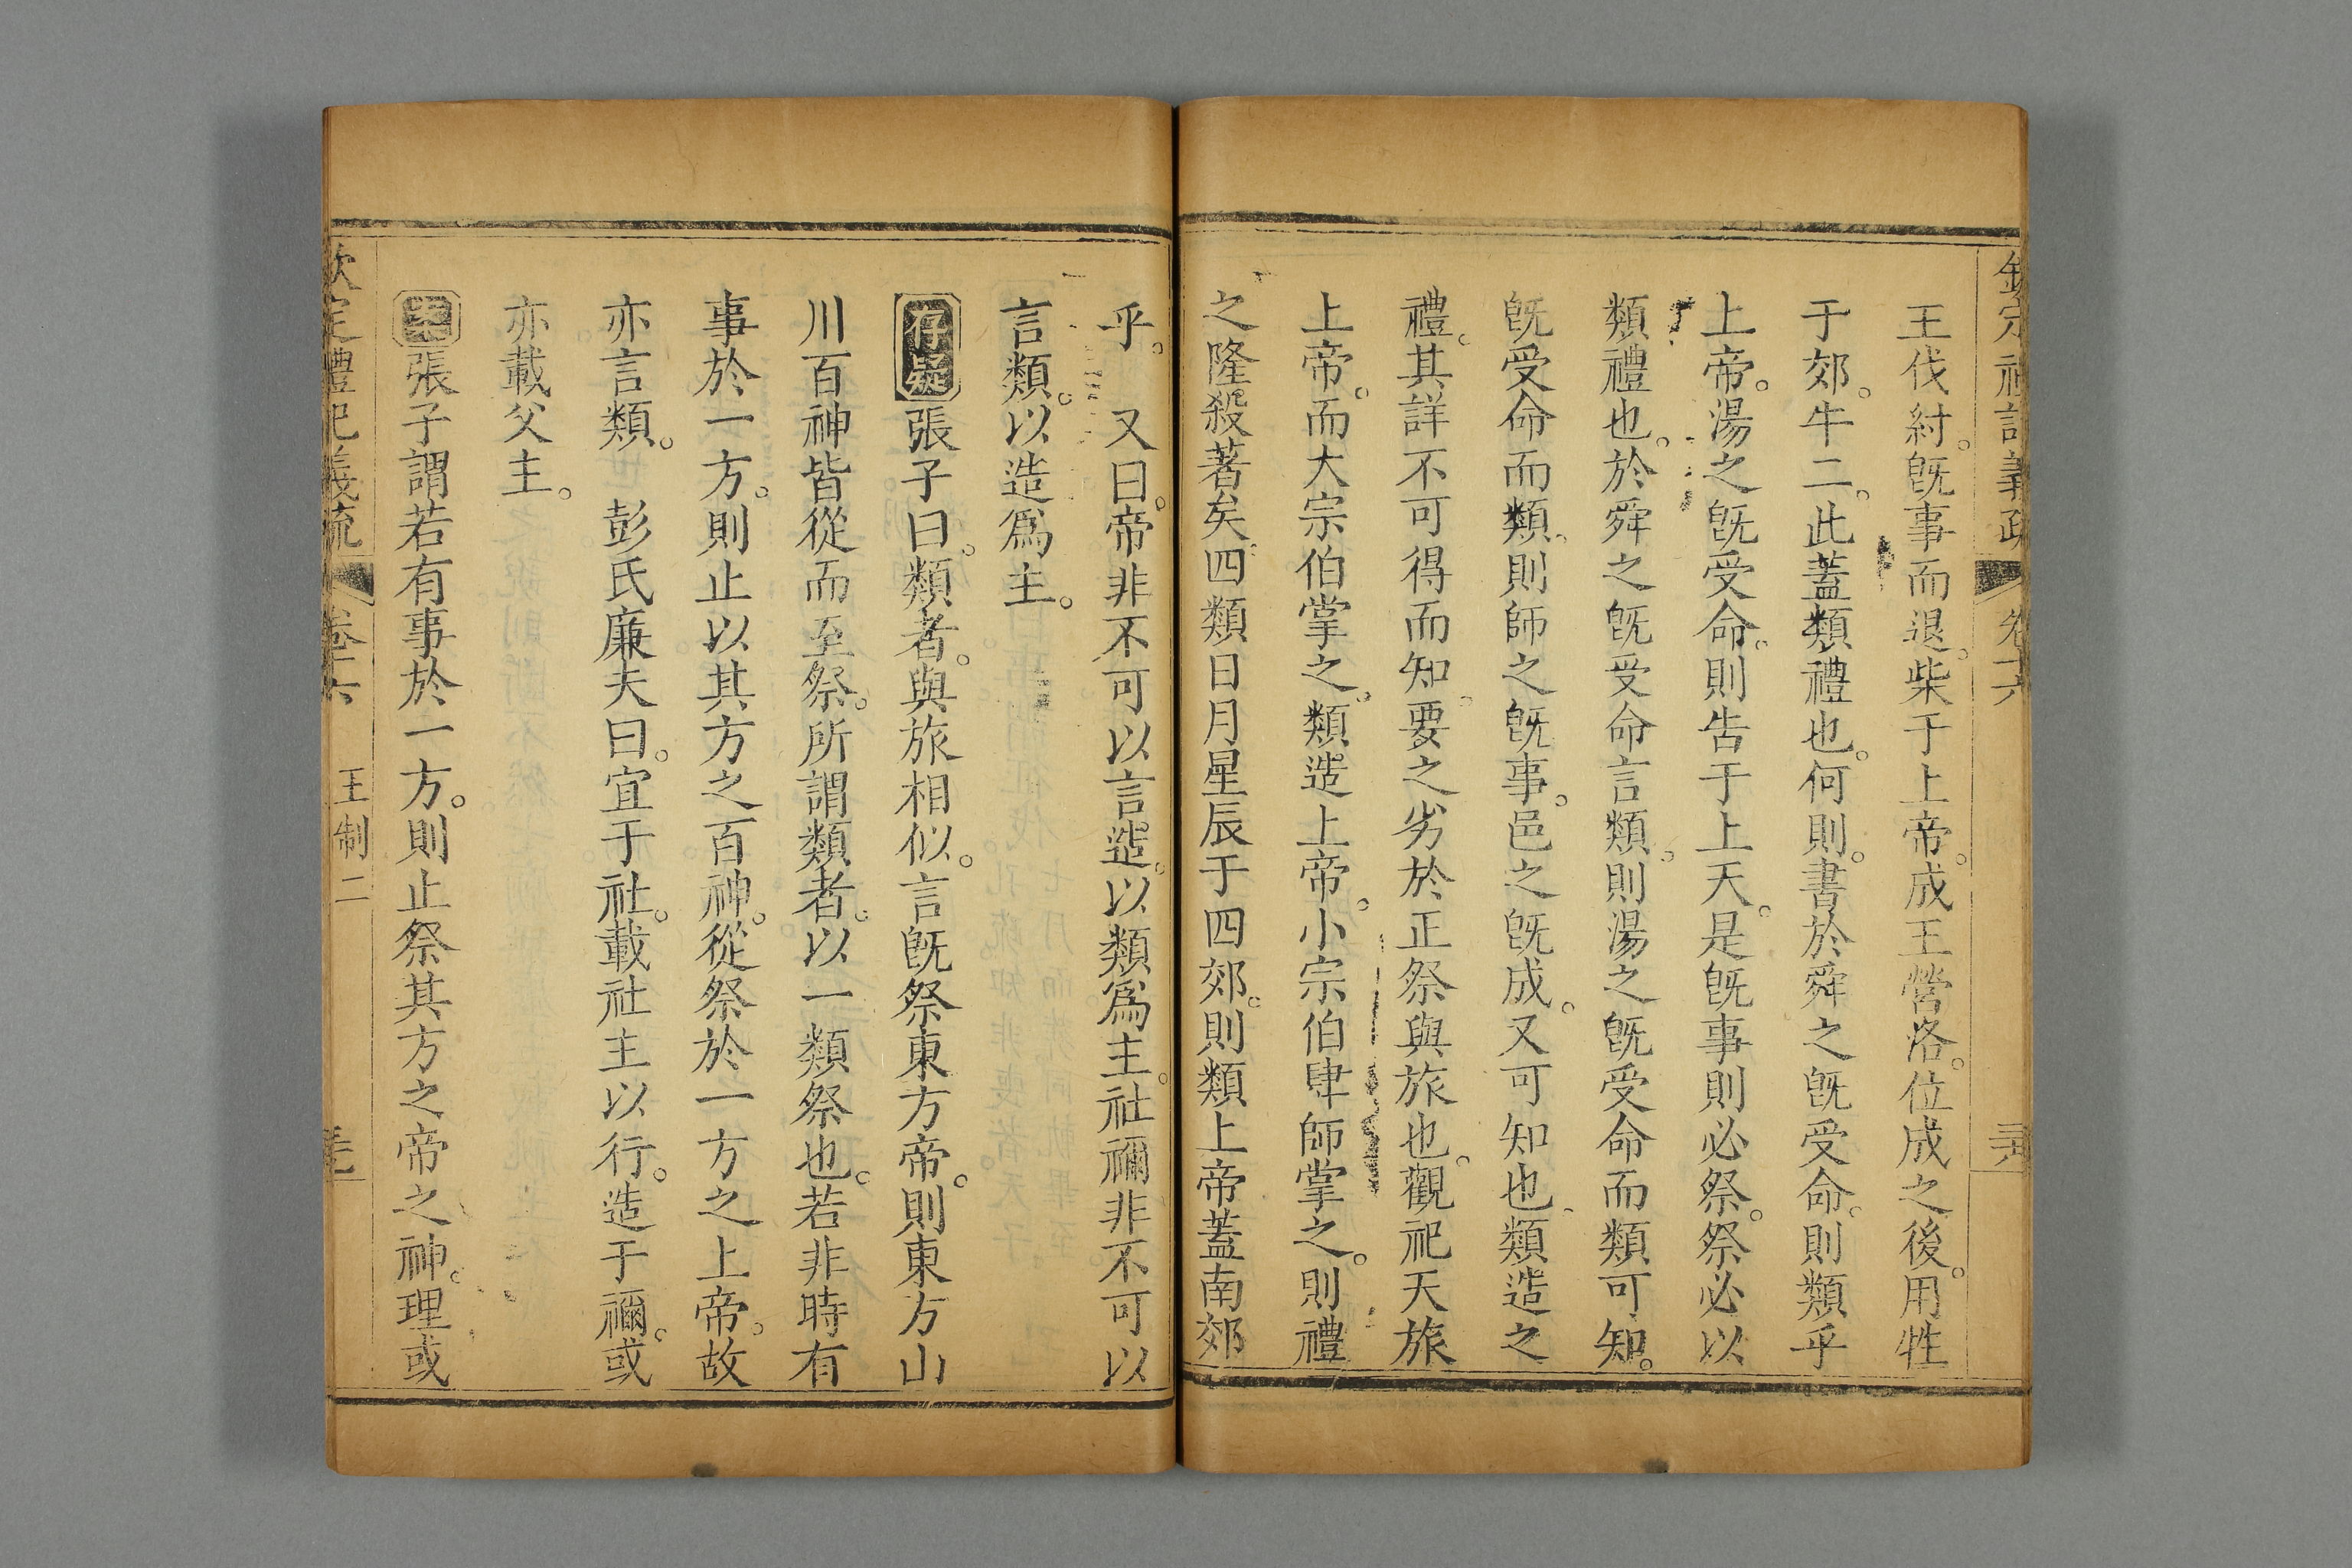 欽定禮記義疏 卷十六
王伐紂。旣事而退。柴于上帝。成王營洛。位成之後。用牲
于郊。牛二。此蓋類禮也。何則。書於舜之旣受命。則類乎
上帝。湯之旣受命。則告于上天。是旣事則必祭。祭必以
類禮也。於舜之旣受命言類。則湯之旣受命而類可知。
旣受命而類。則師之旣事。邑之旣成。又可知也。類造之
禮。其詳不可得而知。要之劣於正祭與旅也。觀祀天旅
上帝。而大宗伯掌之。類造上帝。小宗伯肆師掌之。則禮
之隆殺著矣。四類日月星辰于四郊。則類上帝蓋南郊
乎。 又曰。帝非不可以言造。以類爲主。社禰非不可以
言類。以造爲主。
存疑張子曰。類者。與旅相似。言旣祭東方帝。則東方山
川百神皆從而至祭。所謂類者。以一類祭也。若非時有
事於一方。則止以其方之百神。從祭於一方之上帝。故
亦言類。 彭氏廉夫曰。宜于社。載社主以行。造于禰。或
亦載父主。
案張子謂若有事於一方。則止祭其方之帝之神。理或
欽定禮記義疏 卷十六 王制二